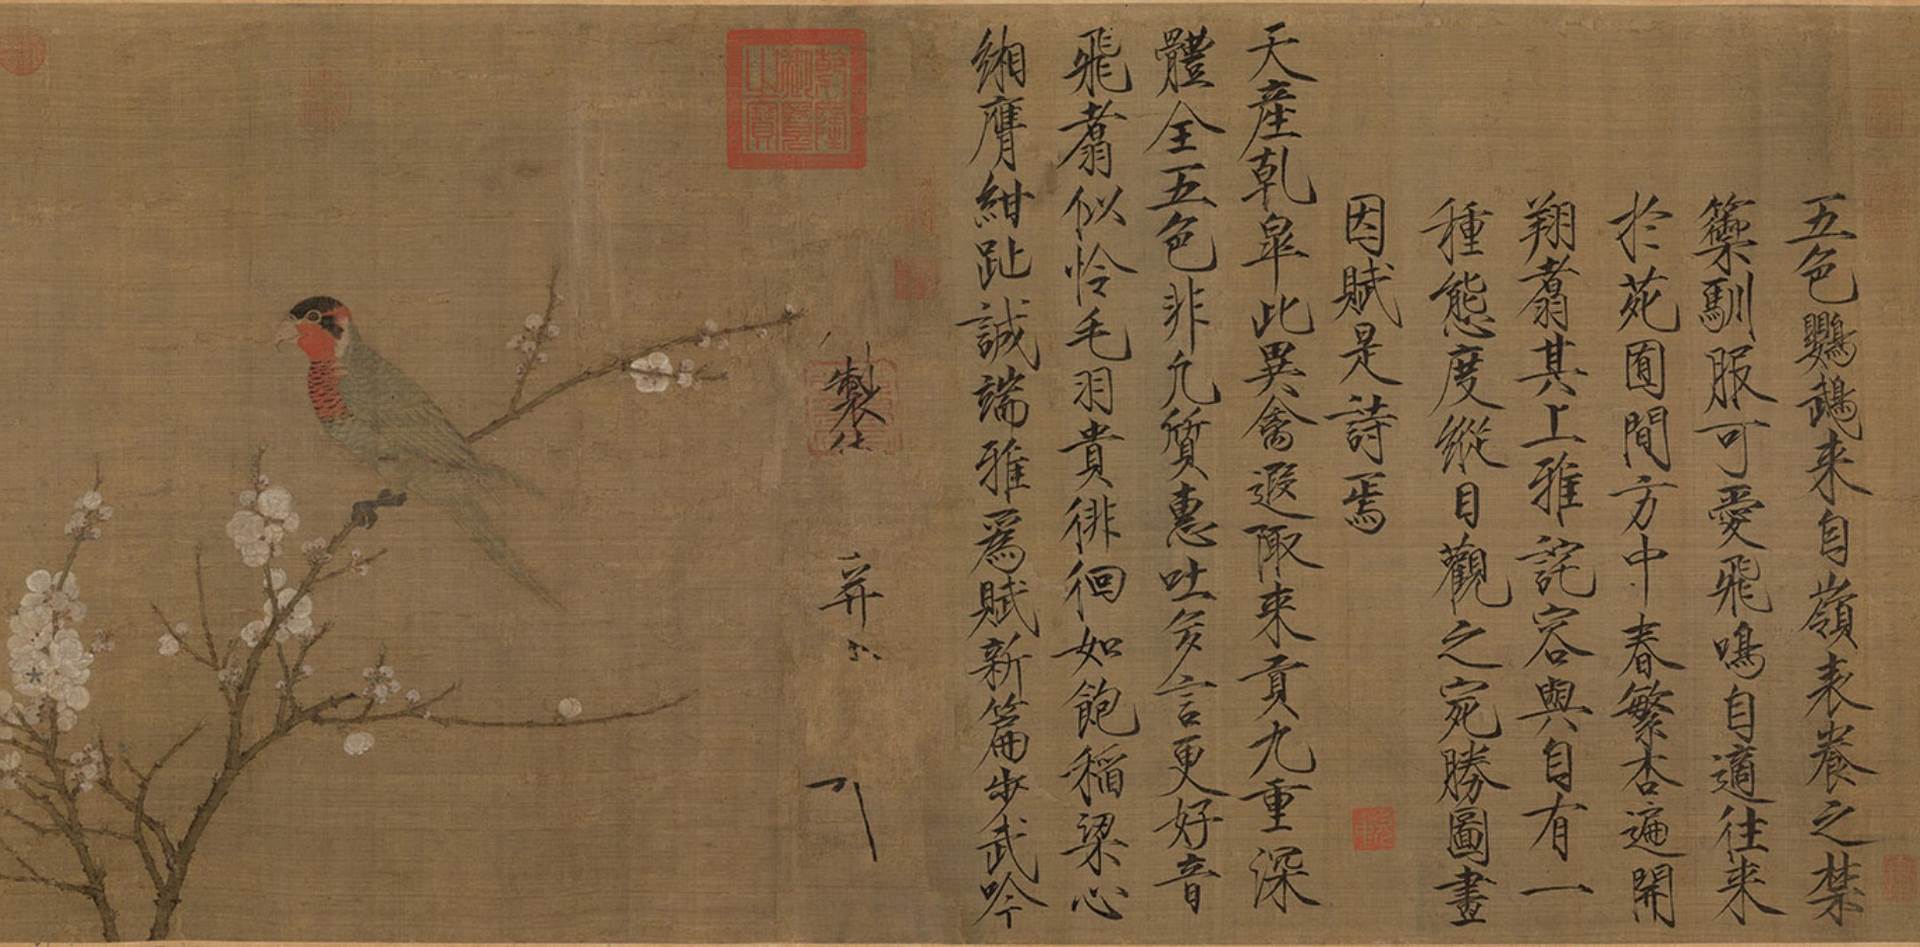 五色鸚鵡来自嶺表養之禁
籞馴服可愛飛鳴自適往来
於苑囿間方中春繁杏遍開
翔翥其上雅詫容與自有一
種態度縱目觀之宛勝圖畫
因賦是詩焉
天産乹皐此異禽遐陬来貢九重深
體全五色非凢質惠吐多言更好音
飛翥似怜毛羽貴徘徊如飽稲梁心
緗膺紺趾誠端雅為賦新篇步武吟
製